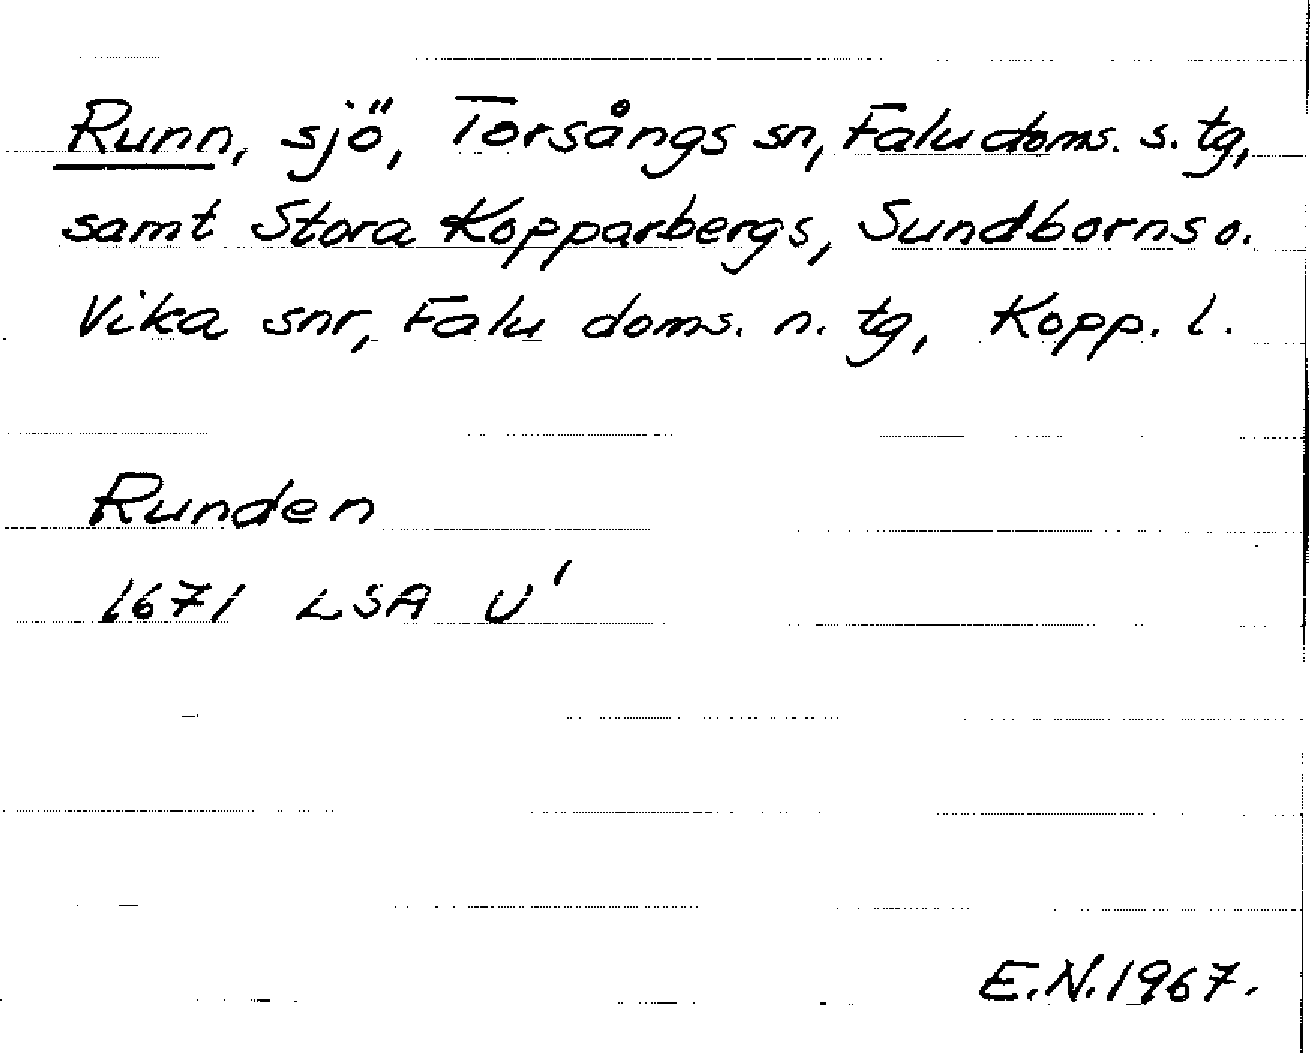 Runn, sjö, Torsångs sn, Falu doms. s. tg,
samt Stora Kopparbergs, Sundborns o.
Vika snr, Falu doms. n. tg, Kopp. l.
Runden
1671 LSA U'
E.N. 1967.